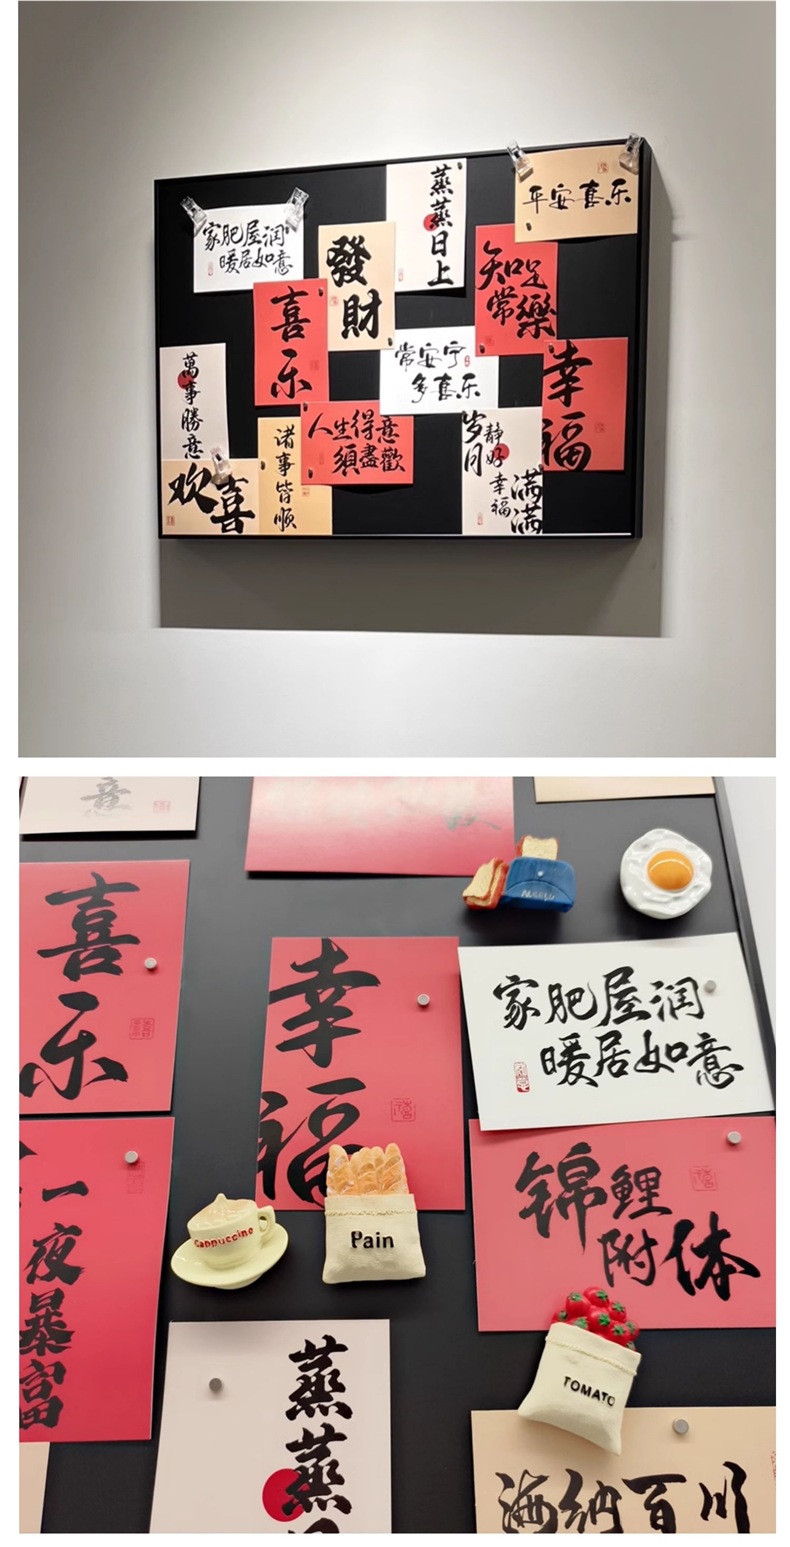 家肥屋润
暖居如意
發
財
蒸
蒸
日
上
平安喜乐
喜
乐
知足
常樂
常安宁
多喜乐
幸
福
萬
事
勝
意
人生得意
須盡歡
诸
事
皆
順
岁月
静好
幸福
满满
欢喜
意
喜
乐
幸
福
家肥屋润
暖居如意
锦鲤
附体
一
夜
暴
富
Cappuccino
Pain
TOMATO
蒸
蒸
海纳百川